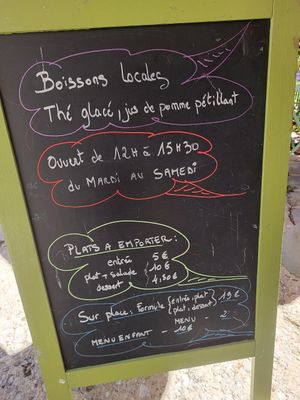 Boissons locales
Thé glacé, jus de pomme pétillant
Ouvert de 12H à 15H30
du MARDI AU SAMEDI
PLATS A EMPORTER :
entrée 5€
plat + salade 10€
dessert 4,50€
Sur place : Formule { entrée, plat 19€
{ plat, dessert
MENU - 2
MENU ENFANT - 10€